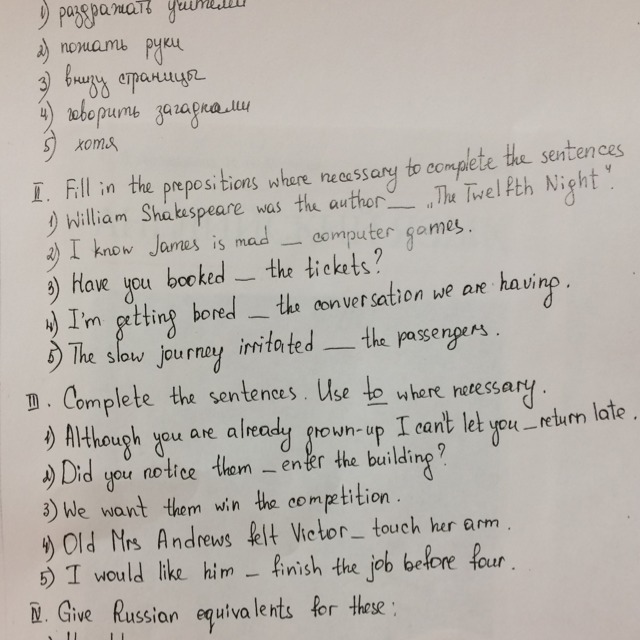 1) раздражать учителей
2) пожать руки
3) внизу страницы
4) говорить загадками
5) хотя
II. Fill in the prepositions where necessary to complete the sentences
1) William Shakespeare was the author __ „The Twelfth Night".
2) I know James is mad _ computer games.
3) Have you booked _ the tickets?
4) I'm getting bored _ the conversation we are having.
5) The slow journey irritated __ the passengers.
III. Complete the sentences. Use to where necessary.
1) Although you are already grown-up I can't let you _ return late.
2) Did you notice them _ enter the building?
3) We want them win the competition.
4) Old Mrs Andrews felt Victor _ touch her arm.
5) I would like him _ finish the job before four.
IV. Give Russian equivalents for these: